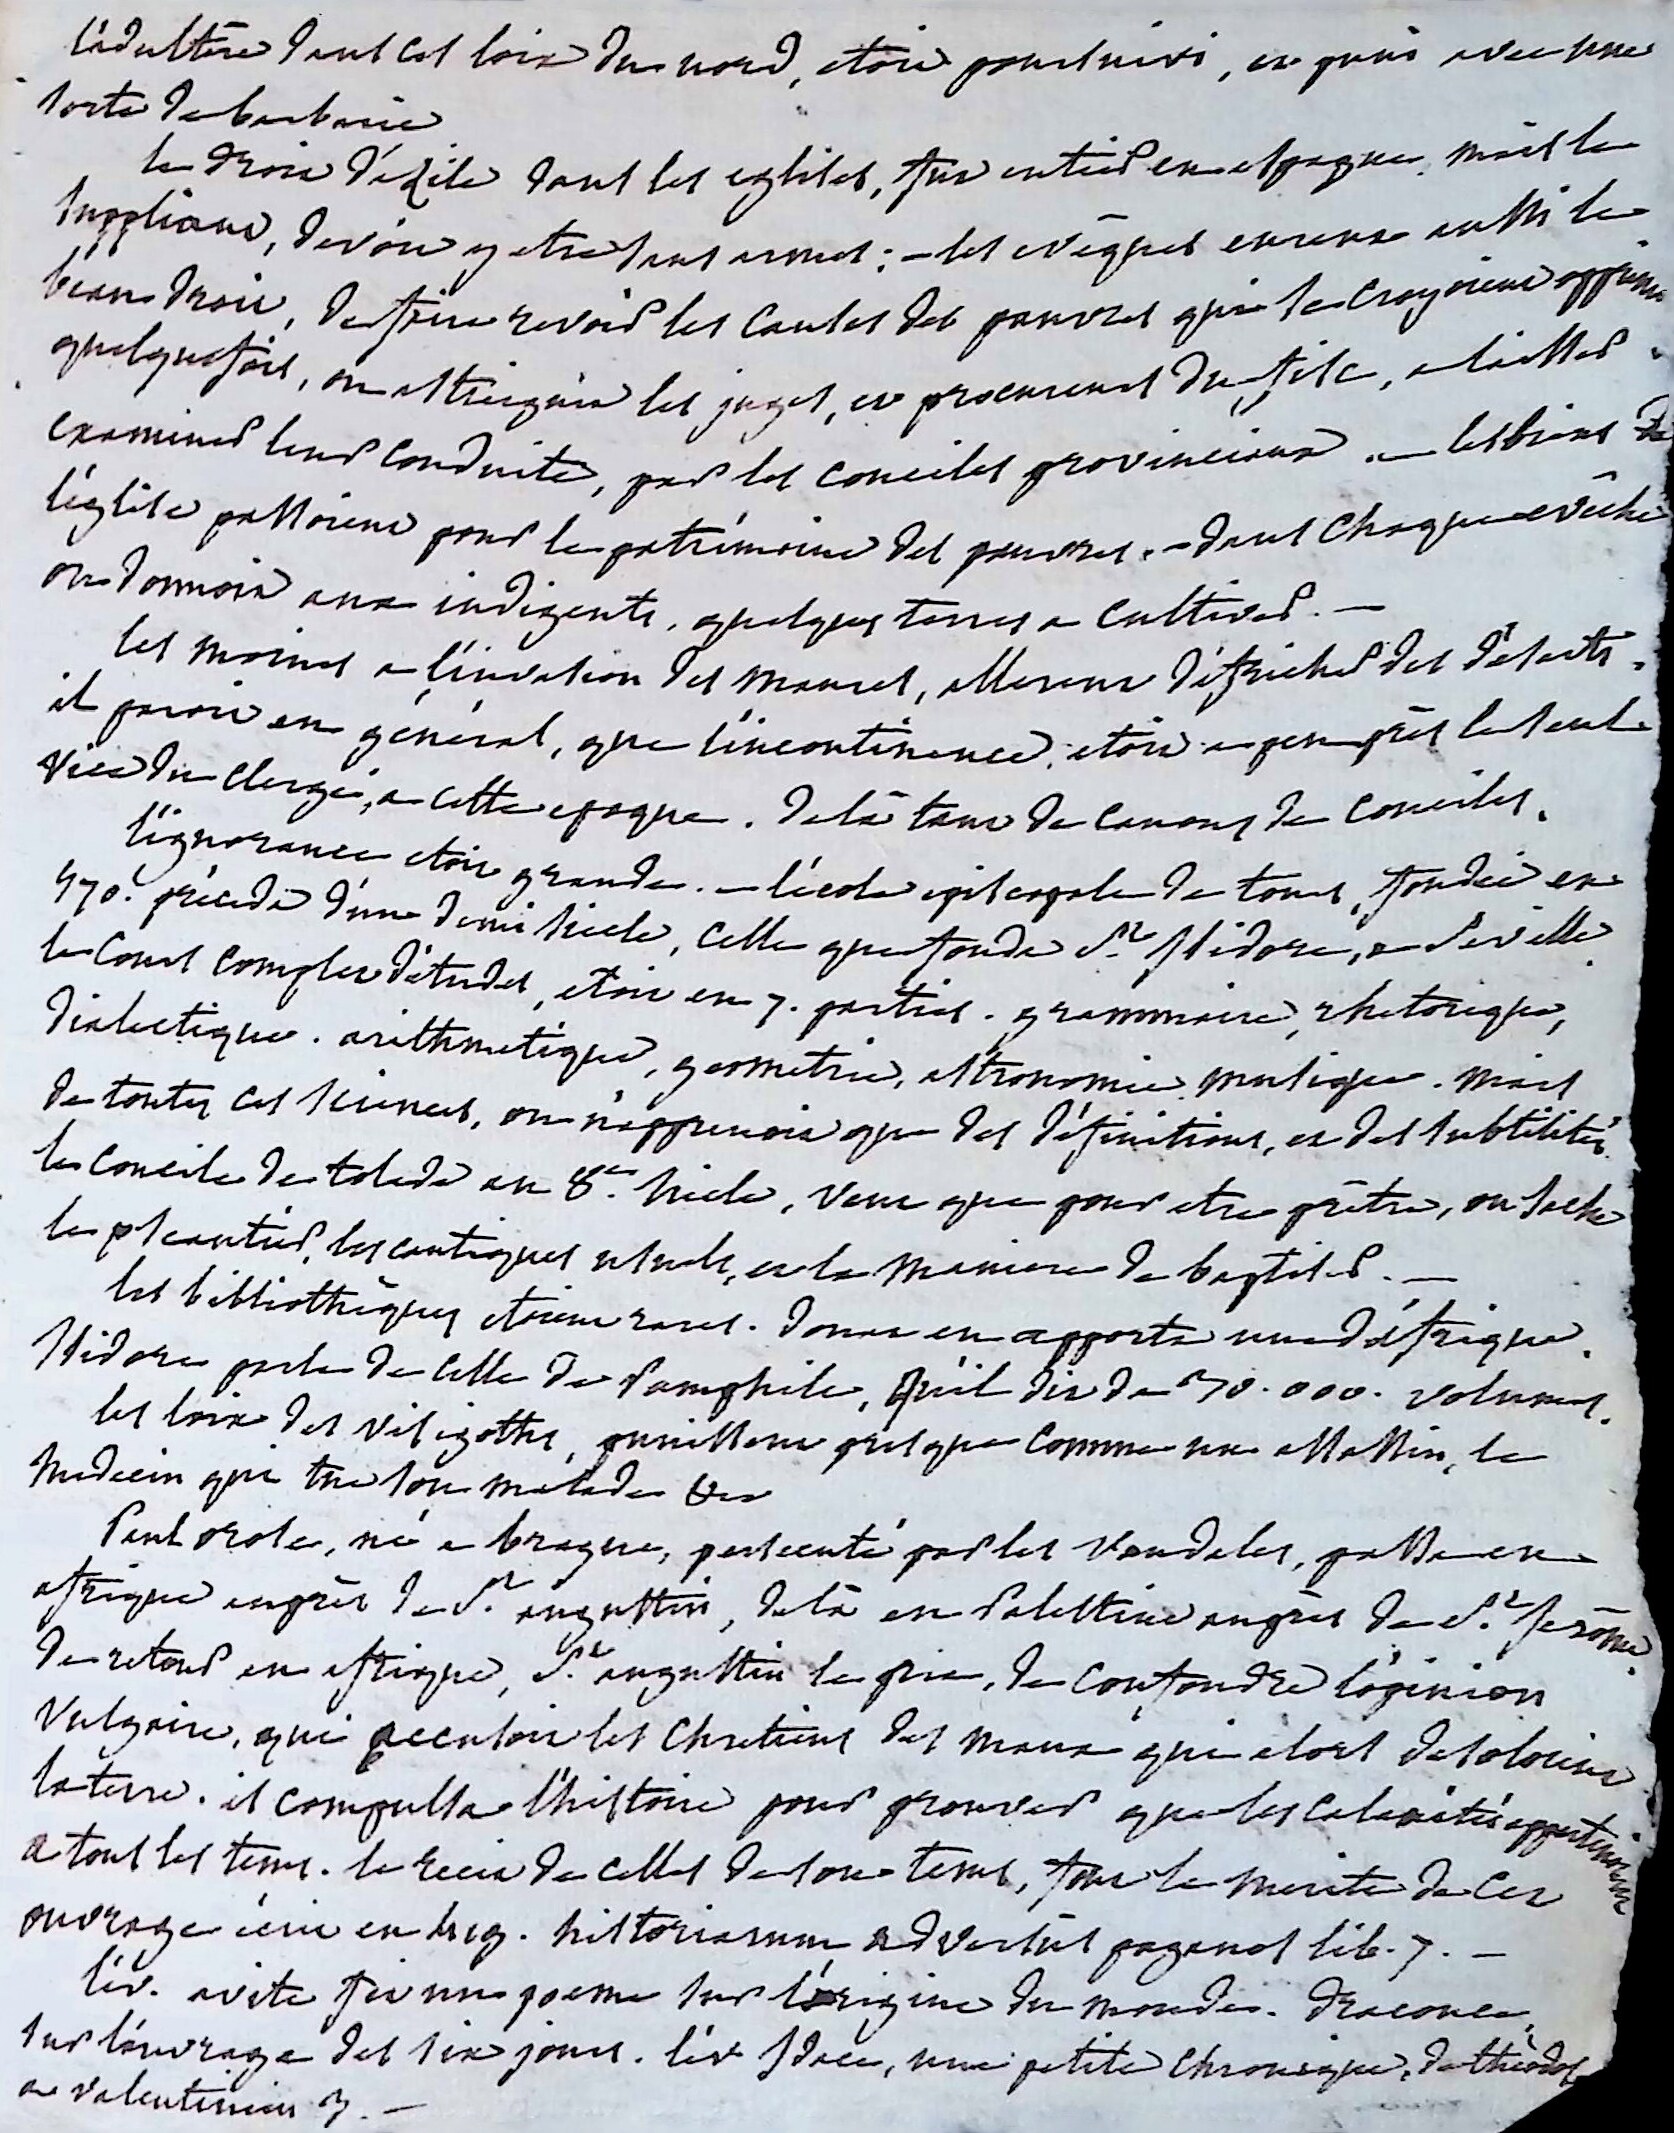 l'adultère dans ces loix du nord, étoit poursuivi, et puni avec une
sorte de barbarie
le droit d'azile dans les eglises, fut entier en espagne. mais le
suppliant, devoit y etre sans armes : – les evêques eurent aussi le
beau droit, de faire revoir les causes des pauvres qui se croyoient opprimés
quelquefois, on astreignit les juges, et procureurs du fisc, a laisser
examiner leur conduite, par les conciles provinciaux. – les biens de
l'église passoient pour le patrimoine des pauvres. – dans chaque evêché
on donnoit aux indigents, quelques terres a cultiver. –
les moines a l'invasion des maures, allerent défricher des déserts.
il paroit en général, que l'incontinence, étoit a peu près le seul
vice du clergé, a cette epoque. delà tant de canons de conciles.
l'ignorance etoit grande. – l'école episcopale de tours, fondée en
470. précéda d'un demi siecle, celle que fonda St. Isidore, a Seville.
le cours complet d'études, etoit en 7. parties. grammaire, rhetorique,
dialectique. arithmetique, geometrie, astronomie, musique. mais
de toutes ces sciences, on n'apprenoit que des définitions, et des subtilités.
le concile de tolede au 8e. siecle, veut que pour etre prêtre, on sache
le pseautier, les cantiques usuels, et la maniere de baptiser. –
les bibliothèques etoient rares. donat en apporta une d'afrique.
Isidore parle de celle de Pamphile, qu'il dit de 30.000. volumes.
les loix des visigoths, punissent presque comme un assassin, le
medecin qui tue son malade &c
Paul orose, né a brague, persecuté par les Vandales, passa en
afrique auprès de St. augustin, delà en Palestine auprès de St. Jerôme.
de retour en afrique, St. augustin le prie, de confondre l'opinion
vulgaire, qui accusoit les chretiens des maux qui alors desoloient
la terre. il compulsa l'histoire pour prouver que les calamités appartenoient
a tous les tems. le recit de celles de son tems, font le merite de cet
ouvrage écrit en 417. historiarum adversùs paganos lib. 7. –
l'év. avite fit un poeme sur l'origine du monde. draconce,
sur l'ouvrage des six jours. l'év Idace, une petite chronique, de théodose
a valentinien 3. –